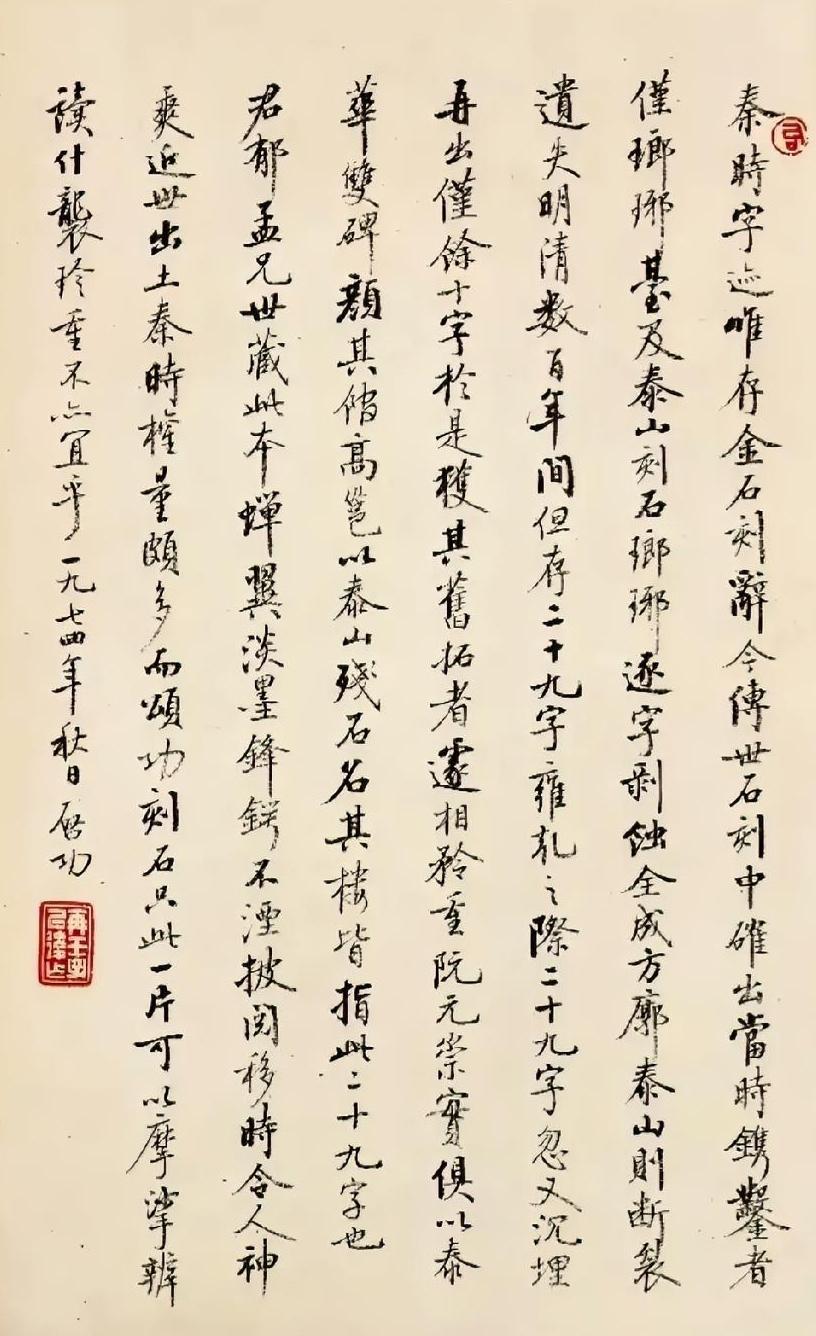 秦時字迹唯存金石刻辭今傳世石刻中確出當時鐫鑿者
僅瑯琊臺及泰山刻石瑯琊逐字剥蝕全成方廓泰山則斷裂
遺失明清数百年間但存二十九字雍乹之際二十九字忽又沉埋
再出僅餘十字於是獲其舊拓者遂相矜重阮元崇實俱以泰
華雙碑顔其齋高邕以泰山殘石名其樓皆指此二十九字也
君郁孟兄世藏此本蟬翼淡墨鋒鍔不湮披閱移時令人神
爽近世出土秦時權量頗多而頌功刻石只此一片可以摩挲辨
讀什襲珍重不亦宜乎一九七四年秋日启功